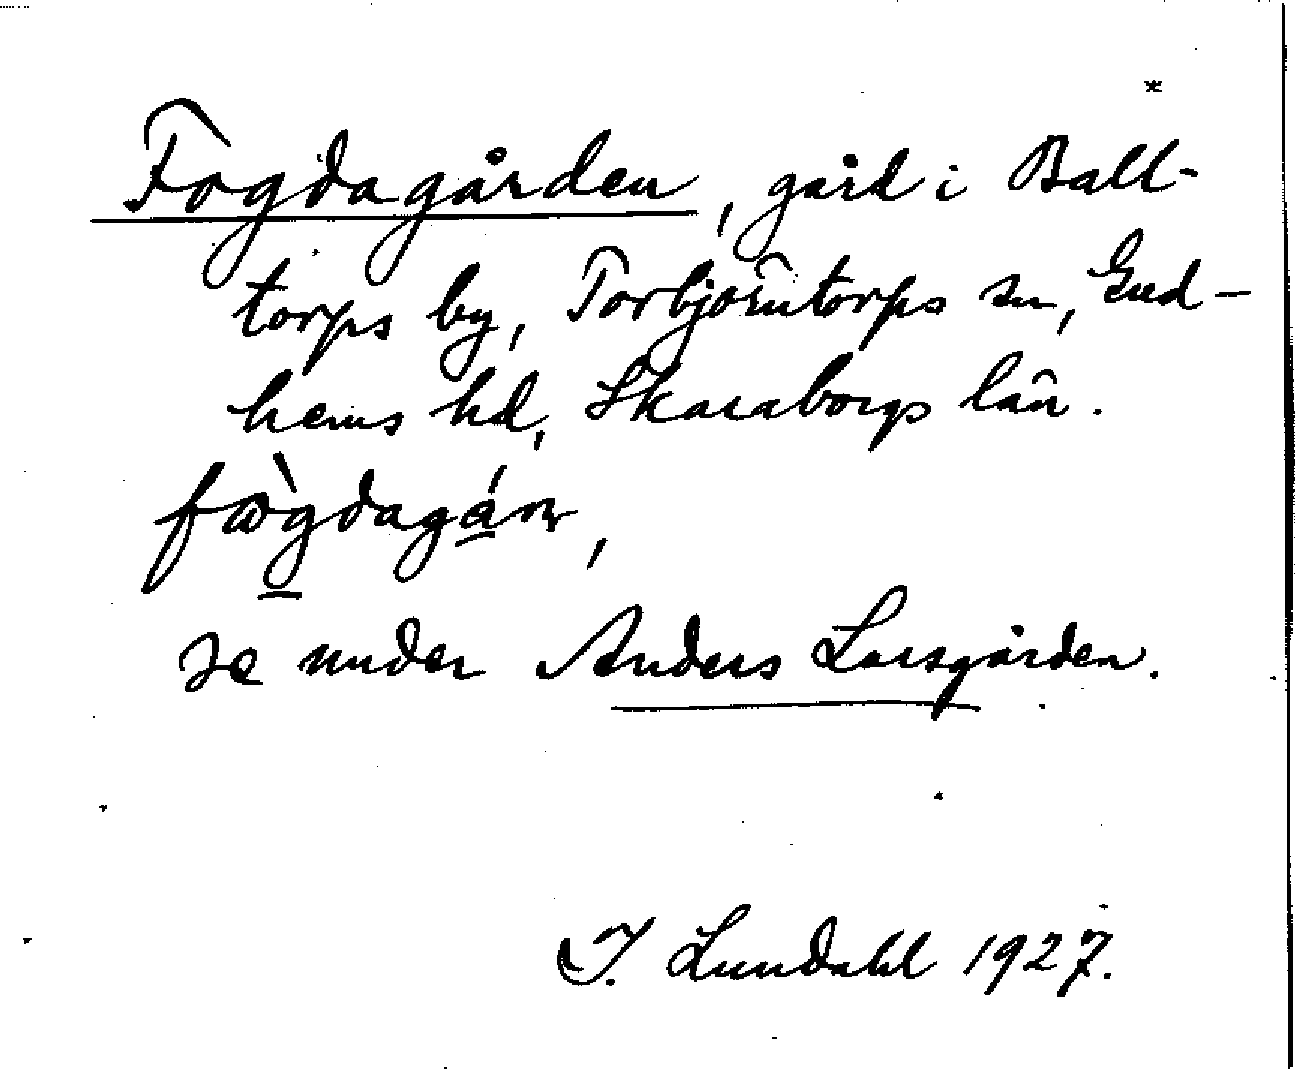 *
Fogdagården, gård i Ball-
torps by, Torbjörntorps sn, Gud-
hems hd, Skaraborgs län.
fœ̀gdagán,
se under Anders Larsgården.
I. Lundahl 1927.